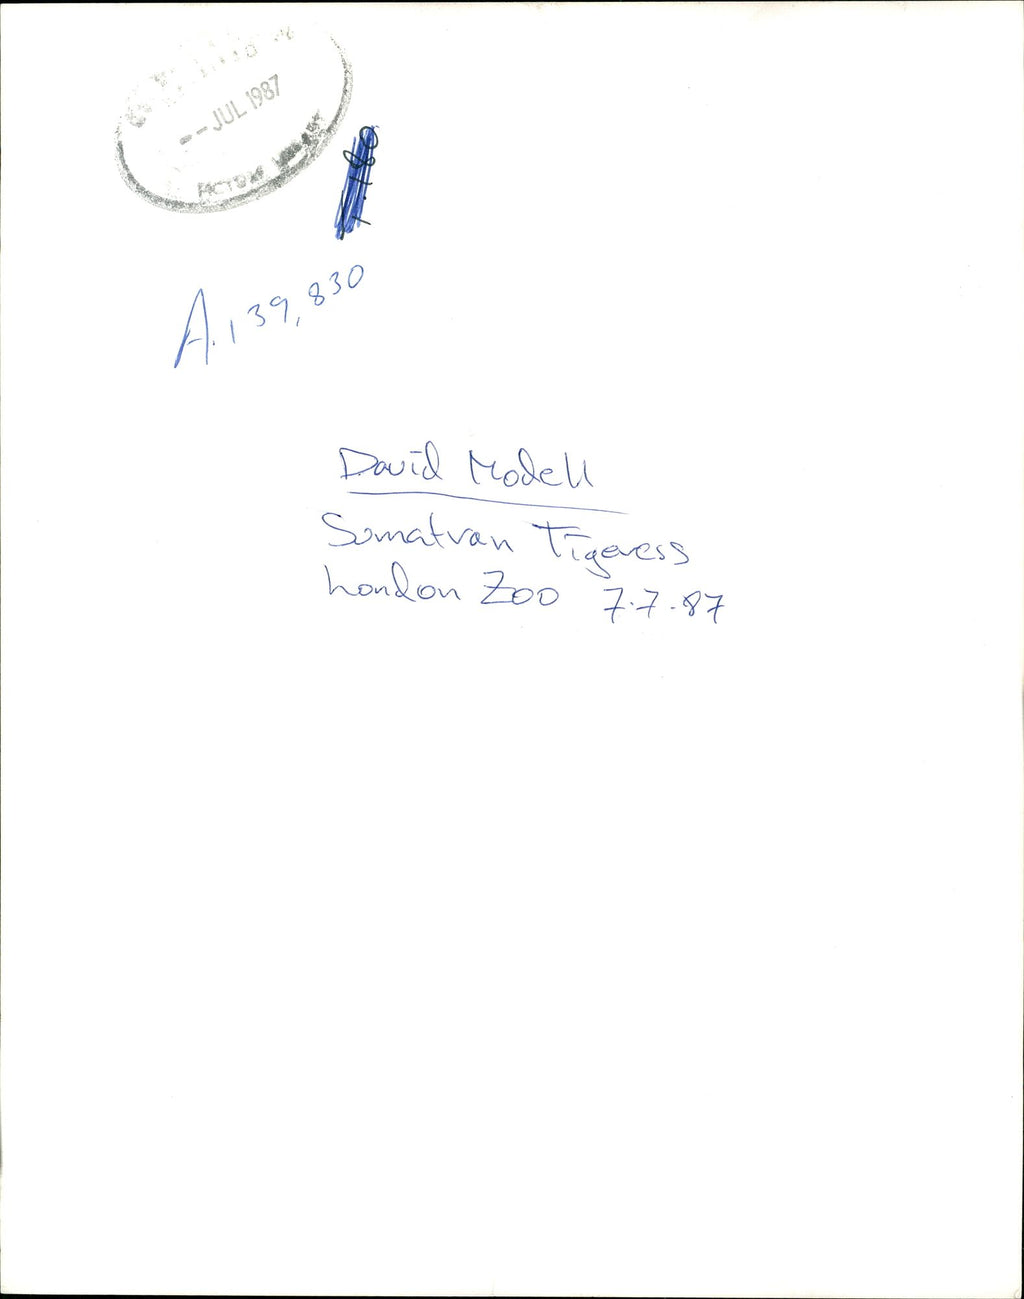 -- JUL 1987
A.139,830
David Modell
Sumatran Tigeress
London Zoo 7.7.87